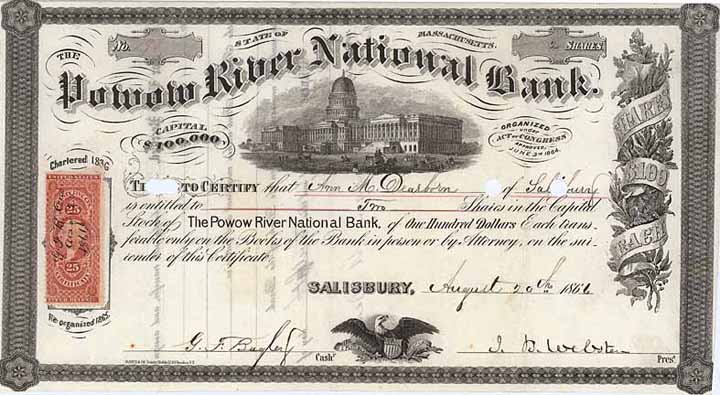 No.
STATE OF MASSACHUSETTS.
SHARES
THE
Powow River National Bank.
CAPITAL
$100,000
ORGANIZED
under
ACT of CONGRESS
APPROVED
JUNE 3D 1864.
Chartered 1836
25
25
Re-organized 1865.
TO CERTIFY that Ann M. Dearborn of Salisbury
is entitled to Two Shares in the Capital
Stock of The Powow River National Bank, of One Hundred Dollars Each trans-
ferable only on the Books of the Bank in person or by Attorney, on the sur-
render of this Certificate.
SHARES
$100
EACH
SALISBURY, August 20th 1866
G. F. Bagley Cashr.
Prest.